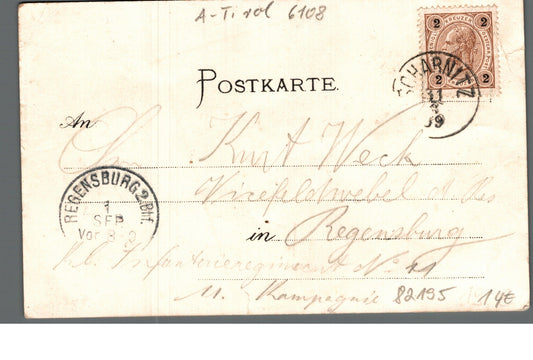 A-Tirol 6108
2 KREUZER 2
2 2
POSTKARTE.
SCHARNITZ
99
An
Kurt Weck
Vizefeldwebel d. Res
REGENSBURG 2 Bhf.
1
SEP
Vor 8-9
in Regensburg
Infanterieregiment No 11
11. Kompagnie 82195 14€